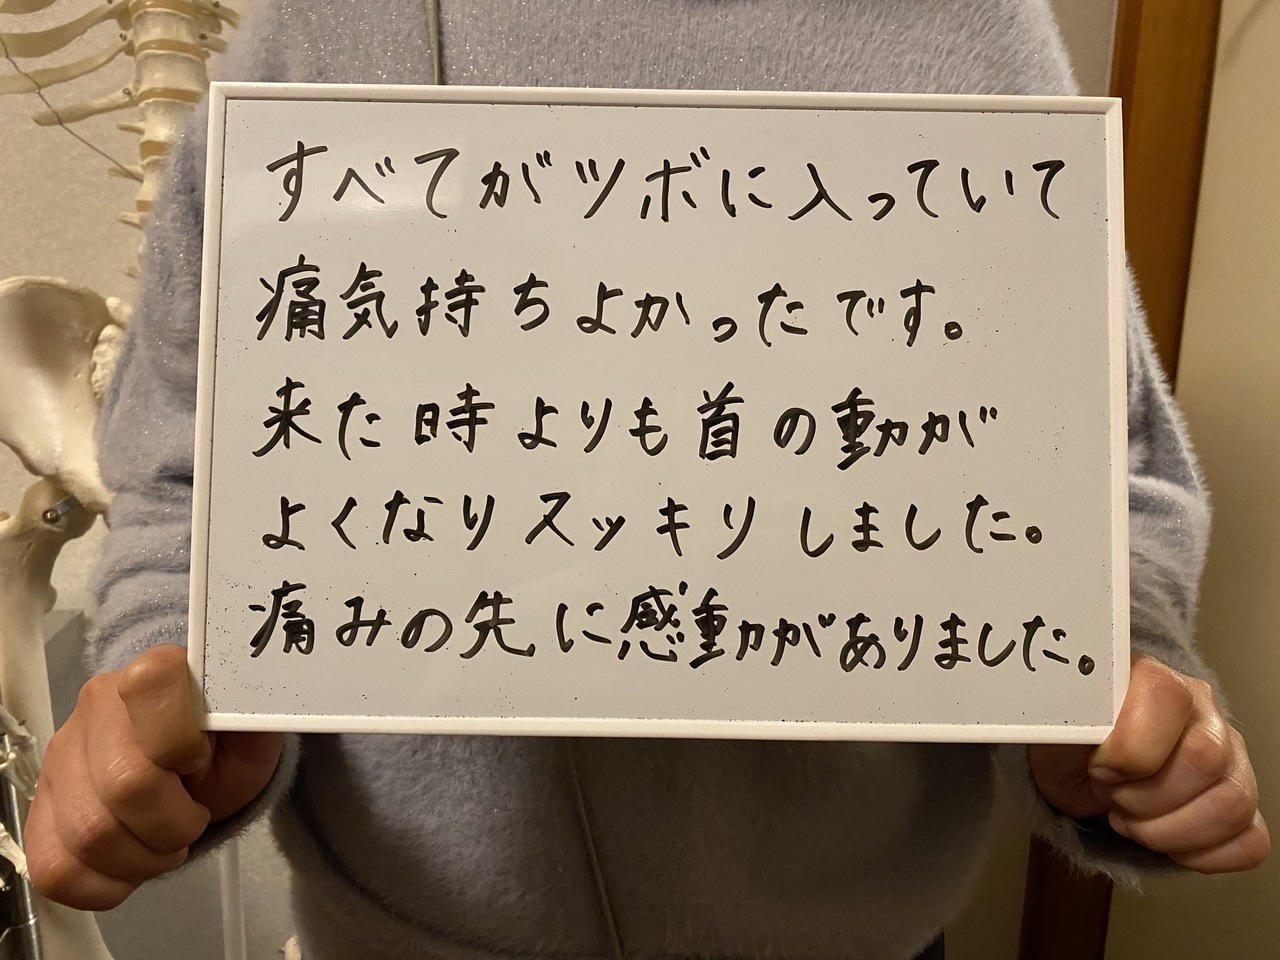 すべてがツボに入っていて
痛気持ちよかったです。
来た時よりも首の動きが
よくなりスッキリしました。
痛みの先に感動がありました。